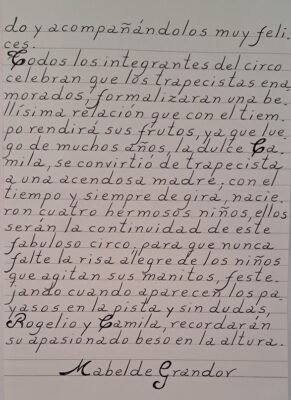 do y acompañándolos muy feli-
ces.
Todos los integrantes del circo
celebran que los trapecistas ena
morados, formalizaran una be-
llísima relación que con el tiem-
po rendirá sus frutos, ya que lue
go de muchos años, la dulce Ca-
mila, se convirtió de trapecista
a una acendosa madre, con el
tiempo y siempre de gira, nacie-
ron cuatro hermosos niños, ellos
serán la continuidad de este
fabuloso circo, para que nunca
falte la risa alegre de los niños
que agitan sus manitos, feste-
jando cuando aparecen los pa-
yasos en la pista y sin dudas,
Rogelio y Camila, recordarán
su apasionado beso en la altura.
Mabel de Grandov